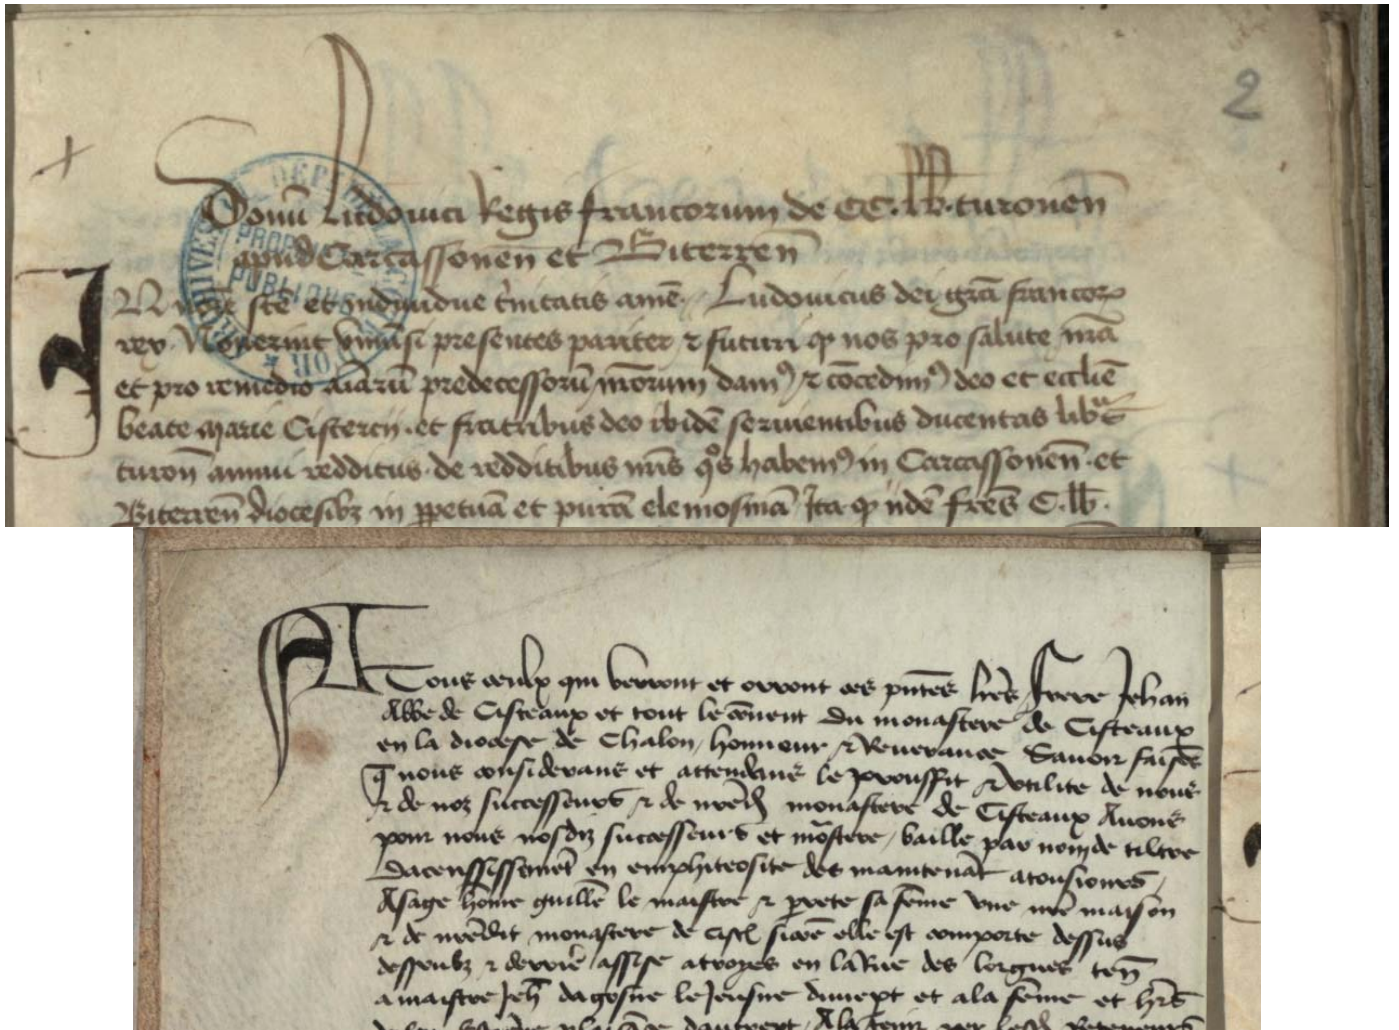 2
Donũ Ludovici Regis francorum de CC. lb. turonen̄
apud Carcassonen̄ et Biterren̄
In noīe sc̄e et individue t'nitatis amē. Ludovicus dei gr̄a francoꝝ
rex. Noverint univ̄si presentes pariter ⁊ futuri ꝙ nos pro salute nr̄a
et pro remedio aīarū predecessorū nr̄orum damꝰ ⁊ cōcedimꝰ deo et ecclīe
beate marie Cistercij. et fratribus deo ibidē servientibus ducentas libr̄
turon̄ annui redditus. de redditibus nr̄is qͦs habemꝰ in Carcassonen̄. et
Biterren̄ diocesibꝫ in ꝑpetuā et purā elemosinā Ita ꝙ iidē fr̄es C. lb.
PROPRIÉTÉ
PUBLIQUE
A Tous ceulx qui verront et orront ces pn̄tes lr̄es Frere Jehan
Abbe de Cisteaux et tout le cōvent du monastere de Cisteaux
en la diocese de Chalon, honnour ⁊ Reverance Savoir faisōs
q̄ nous considerans et attendans le prouffit ⁊ utilite de nous
⁊ de noz successeurs ⁊ de nr̄ed̄ monastere de Cisteaux Avons
pour nous nosdiz successeurs et mōstere, baille par nom de tiltre
Dacenssissemēt en emphiteosite des maintenāt a tousiours,
A sage hōme guillē le maistre ⁊ ꝑrete sa fēme une nr̄e maison
⁊ de nr̄edit monastere de cist̄ sicōe elle est comporte dessus
dessoubz ⁊ derrier̄ assise a troyes en la Rue des lorgnes ten̄
a maistre Jeh̄ dagosne le Jeusne dune pt et a la fēme et hr̄s